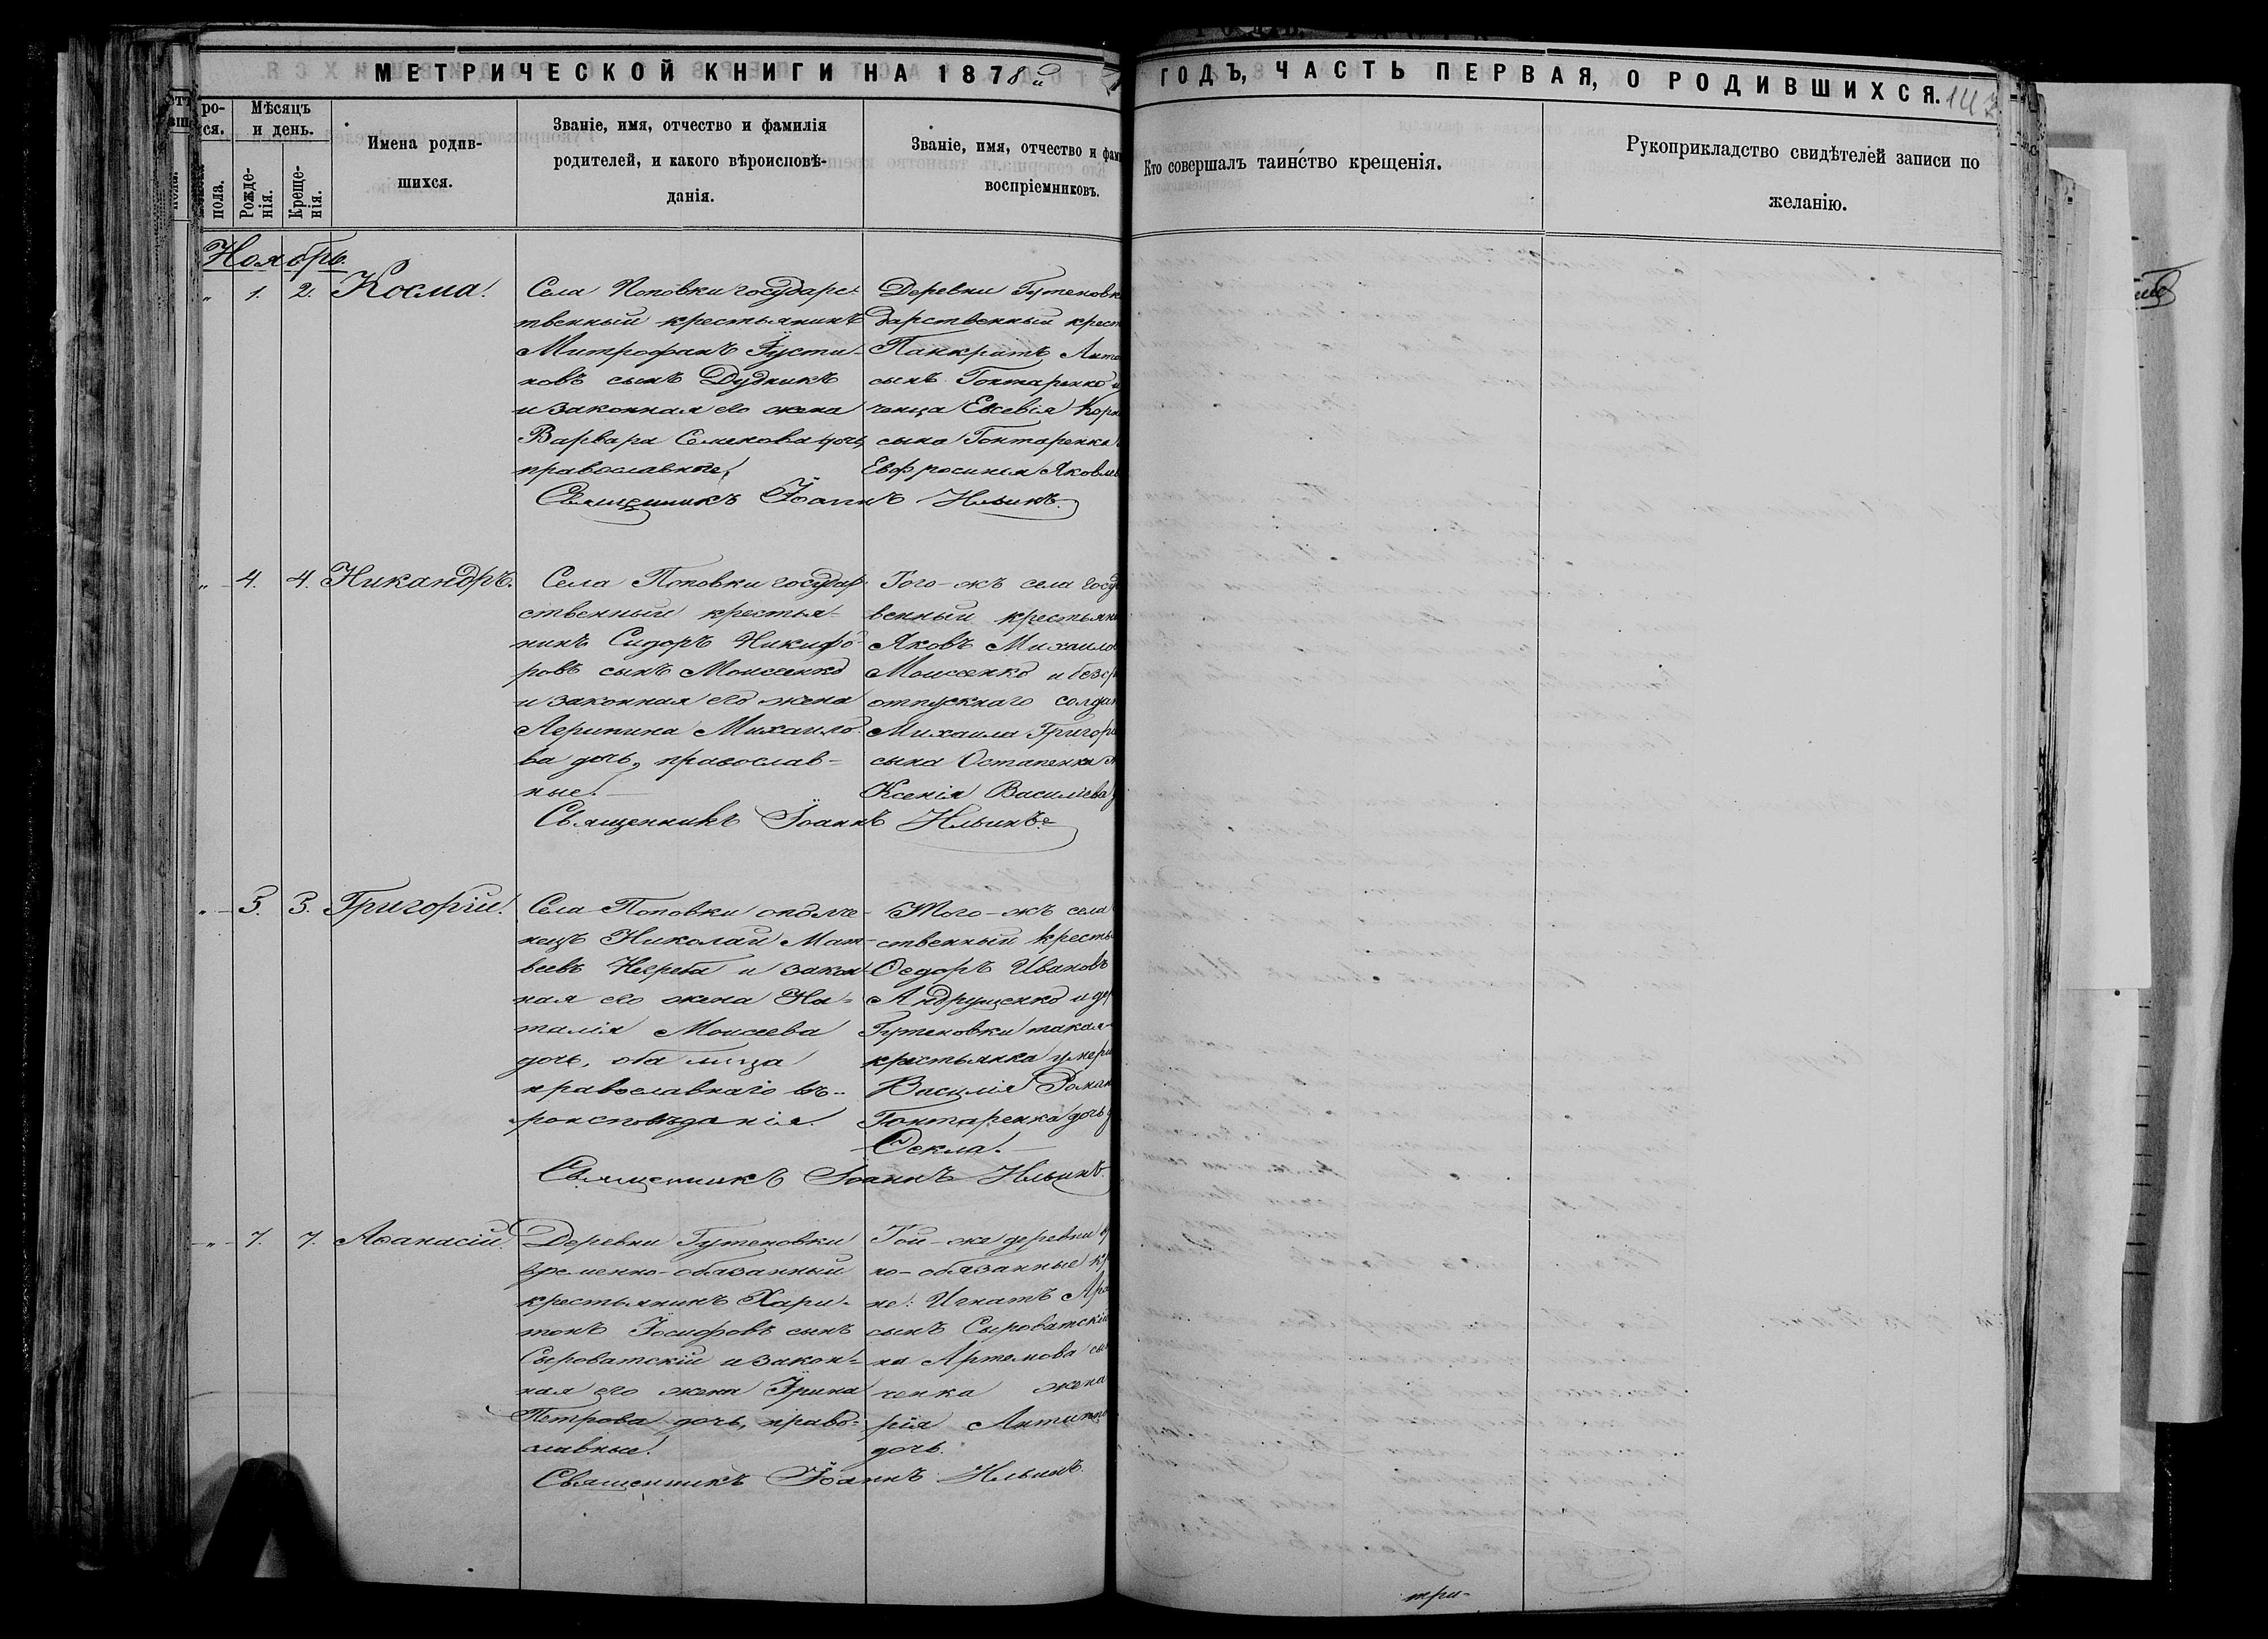 МЕТРИЧЕСКОЙ КНИГИ НА 1878й
ГОДЪ, ЧАСТЬ ПЕРВАЯ, О РОДИВШИХСЯ.
ро-
ся.
пола.
Мѣсяцъ
и день.
Рожде-
нія.
Креще-
нія.
Имена родив-
шихся.
Званіе, имя, отчество и фамилія
родителей, и какого вѣроисповѣ-
данія.
Званіе, имя, отчество и фам
воспріемниковъ.
Кто совершалъ таинство крещенія.
Рукоприкладство свидѣтелей записи по
желанію.
Ноябрь.
" 1. 2. Косма.
Села Поповки государс-
твенный крестьянинъ
Митрофанъ Іусти-
новъ сынъ Дудникъ
и законная его жена
Варвара Семенова дочь,
православные.
Деревни Гутеновк
дарственный крест
Панкратъ Анто
сынъ Гонтаренко и
ченца Евсевія Корн
сына Гонтаренка
Евфросинія Яковле
Священникъ Іоаннъ Ильинъ.
" 4. 4. Никандръ.
Села Поповки государ-
ственный крестья-
нинъ Сидоръ Никифо-
ровъ сынъ Моисеенко
и законная его жена
Михаило-
ва дочь, православ-
ные.
Того-жъ села госуд
венный крестьяни
Яковъ Михаило
Моисеенко и безср
отпускнаго солда
Михаила Григорь
сына Остапенка
Ксенія Василіева
Священникъ Іоаннъ Ильинъ
" 5. 5. Григорій.
Села Поповки ополче-
нецъ Николай Мат-
веевъ и закон-
ная его жена На-
талія Моисеева
дочь, оба лица
православнаго вѣ-
роисповѣданія.
Того-жъ села
ственный кресть
Ѳедоръ Ивановъ
Андрущенко и де
Гутеновки такая-
крестьянка умер
Василія Роман
Гонтаренка дочь
Ѳекла.
Священникъ Іоаннъ Ильинъ
" 7. 7. Аѳанасій.
Деревни Гутеновки
временно-обязанный
крестьянинъ Хари-
тонъ Іосифовъ сынъ
Сыроватскій и закон-
ная его жена Ірина
Петрова дочь, право-
славные.
Той-же деревни в
но-обязанные кр
не: Игнатъ Ар
сынъ Сыроватскій
на Артемова сы
ченка жена
рія Антипо
дочь.
Священникъ Іоаннъ Ильинъ.
три-